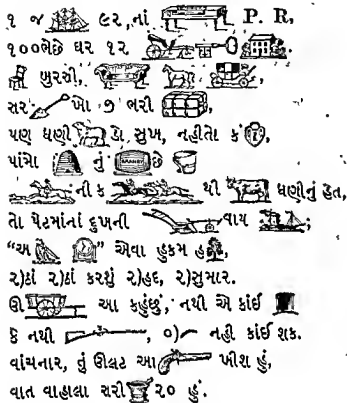 ૧ જ ૯૨, નાં P. R,
૧૦૦ભેછે ઘર ૧૨
ખુરચી,
સર ખા ૭ ભરી
પણ ધણી હો, સુખ, નહીતો કં
પાંચો નું BRANDY છે
ની ક થી ધણીનું હેત,
તો પેટમાંનાં દુખની વાય
"અ " એવા હુકમ હ
૨)ઠાં ૨)ઠાં કરશું ૨)હદ, ૨)સુમાર.
ઊ આ કહુંછું, નથી એ કાંઈ
દ નથી , ૦)~ નહી કાંઈ શક.
વાંચનાર, તું ઊલટ આ ખીશ હું,
વાત વાહાલા સરી ૨૦ હું.